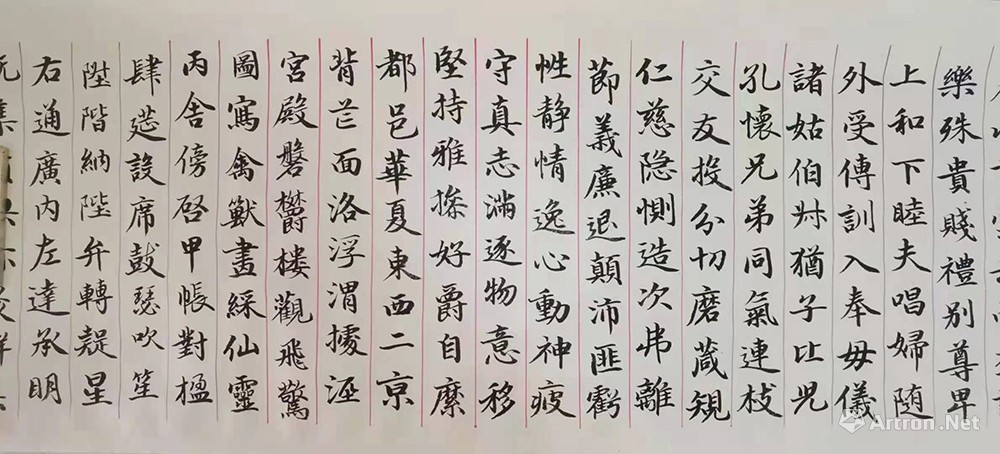 樂殊貴賤禮别尊卑
上和下睦夫唱婦随
外受傳訓入奉毋儀
諸姑伯叔猶子比児
孔懷兄弟同氣連枝
交友投分切磨箴規
仁慈隐惻造次弗離
節義廉退顛沛匪虧
性静情逸心動神疲
守真志滿逐物意移
堅持雅操好爵自縻
都邑華夏東西二亰
背芒面洛浮渭據涇
宮殿磐欝楼觀飛驚
圖寫禽獸畫綵仙靈
丙舍傍啓甲帳對楹
肆筵設席鼓瑟吹笙
陞階納陛弁轉疑星
右通廣内左達承明
既集
Artron.Net